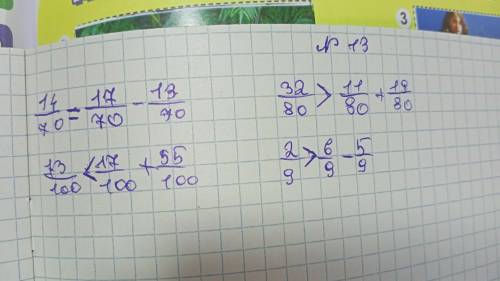 3
№ 13
14/70 = 17/70 - 13/70
32/80 > 11/80 + 19/80
73/100 < 17/100 + 55/100
2/9 > 6/9 - 5/9